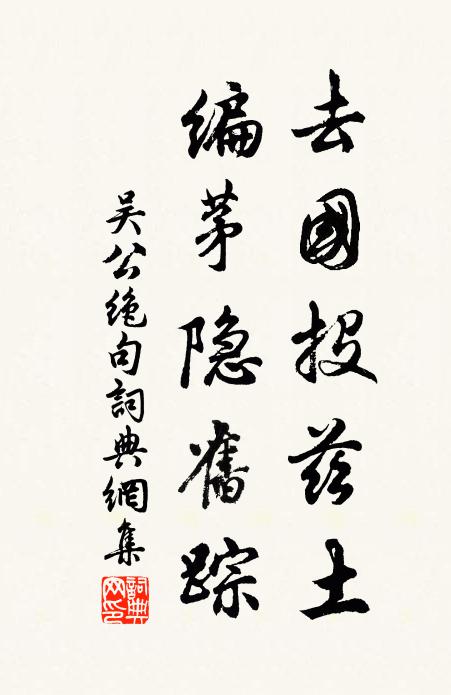 去國投兹土
编茅隐舊踪
吴公绝句詞典網集
詞典网印